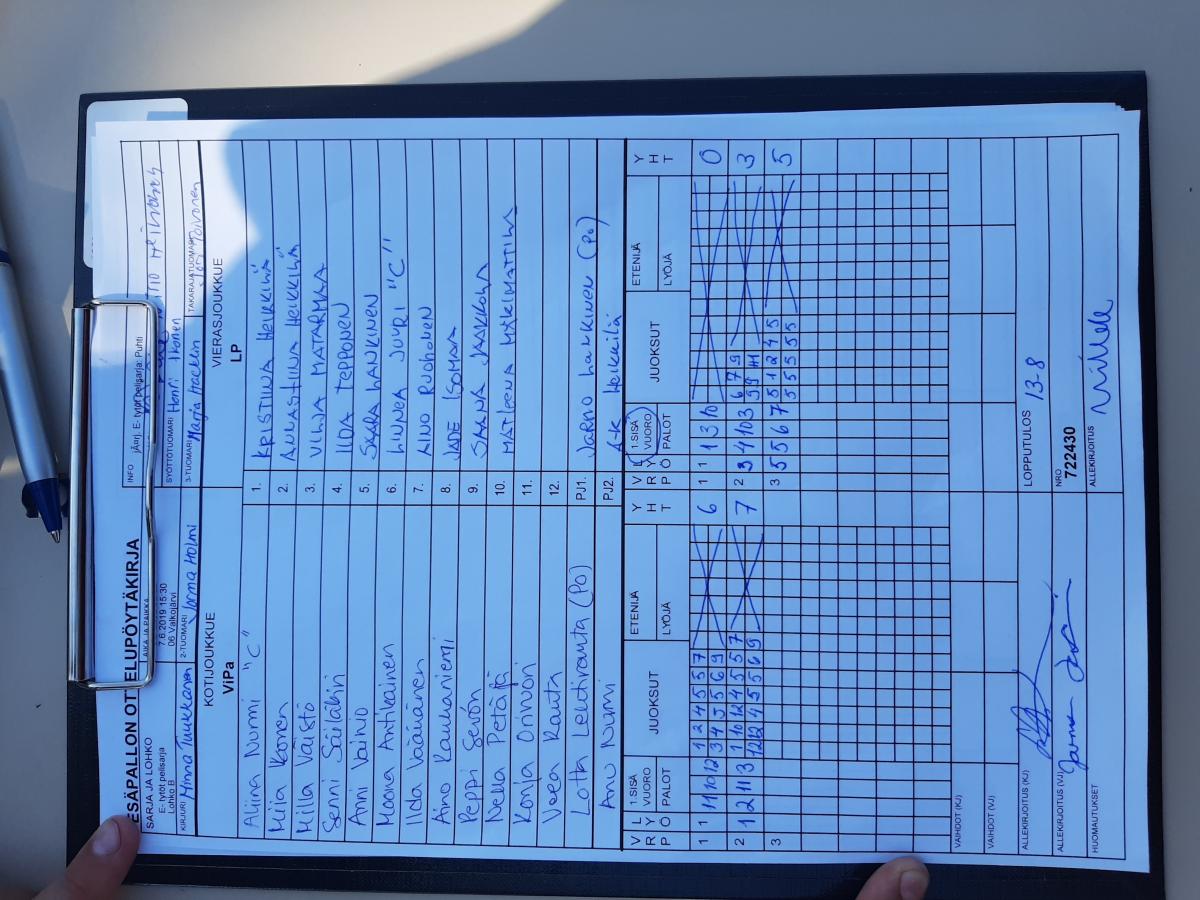 ESÄPALLON OTTELUPÖYTÄKIRJA
SARJA JA LOHKO
E- tytöt pelisarja
Lohko B
AIKA JA PAIKKA
7.6.2019 15:30
06 Valkojärvi
INFO Järj. E- tytöt pelisarja: Puhti
KIRJURI Minna Tuukkanen
2-TUOMARI Jorma Holmi
SYÖTTÖTUOMARI Henri Ikonen
3-TUOMARI Marja Hacklin
TAKARAJATUOMARI Toivonen
KOTIJOUKKUE
ViPa
VIERASJOUKKUE
LP
Aliina Nurmi "C" 1. KRISTIINA HEIKKILÄ
Miia 2. HEIKKILÄ
Milla Väistö 3. VILMA MATARMAA
Senni Säiläkivi 4. IIDA TEPPONEN
Anni Vainio 5. SAARA LANKINEN
Moona Antikainen 6. LINNEA JUURI "C"
Iida Väänänen 7. AINO RUOHONEN
Aino Rauhaniemi 8. JADE ISOMAA
Peppi Sevón 9. SAANA JAAKKOLA
Nella Petäjä 10. MATLEENA
Orinvori 11.
Veea Ranta 12.
Lotta Lehtiranta (PO) PJ1. Jarmo Lankinen (PO)
Nurmi PJ2. A-K Heikkilä
V R P L Y Ö 1.SISÄ VUORO PALOT JUOKSUT ETENIJÄ LYÖJÄ Y H T V R P L Y Ö 1.SISÄ VUORO PALOT JUOKSUT ETENIJÄ LYÖJÄ Y H T
1 1 11 10 12 1 2 4 5 5 7 6 1 1 1 3 10 0
3 4 5 5 6 9
2 1 12 11 3 1 10 12 4 5 5 7 7 2 3 4 10 3 6 7 9 3
12 12 4 5 5 6 9 5 9 11
3 3 5 5 6 7 5 1 2 4 5 5
5 5 5 5 5
VAIHDOT (KJ)
VAIHDOT (VJ)
ALLEKIRJOITUS (KJ)
LOPPUTULOS 13-8
ALLEKIRJOITUS (VJ)
NRO
722430
HUOMAUTUKSET
ALLEKIRJOITUS